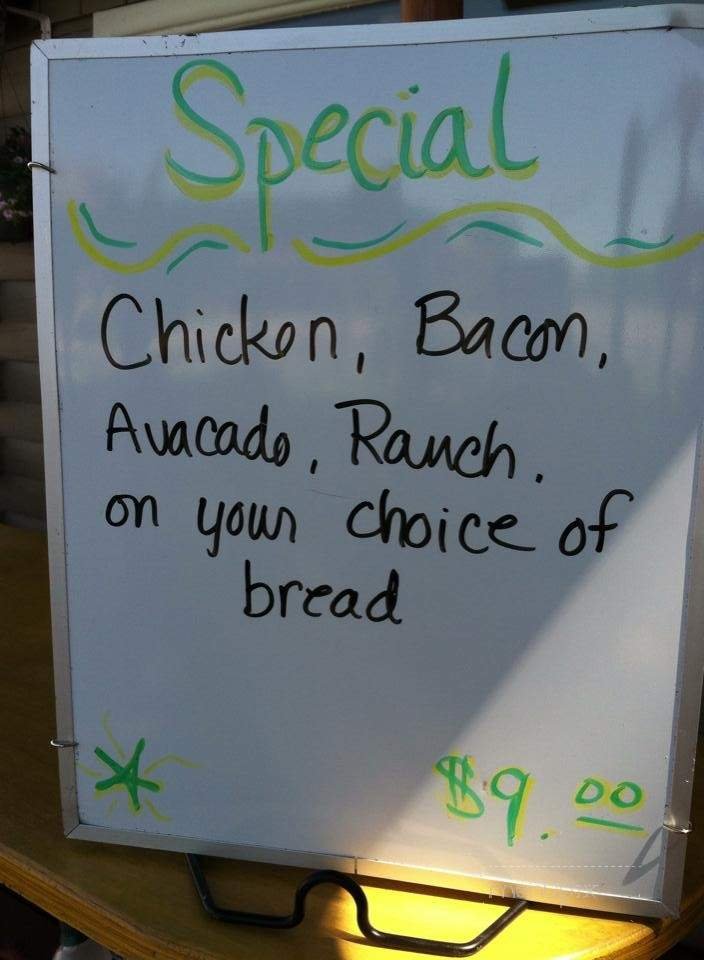 Special
Chicken, Bacon,
Avacado, Ranch.
on your choice of
bread
$9.00